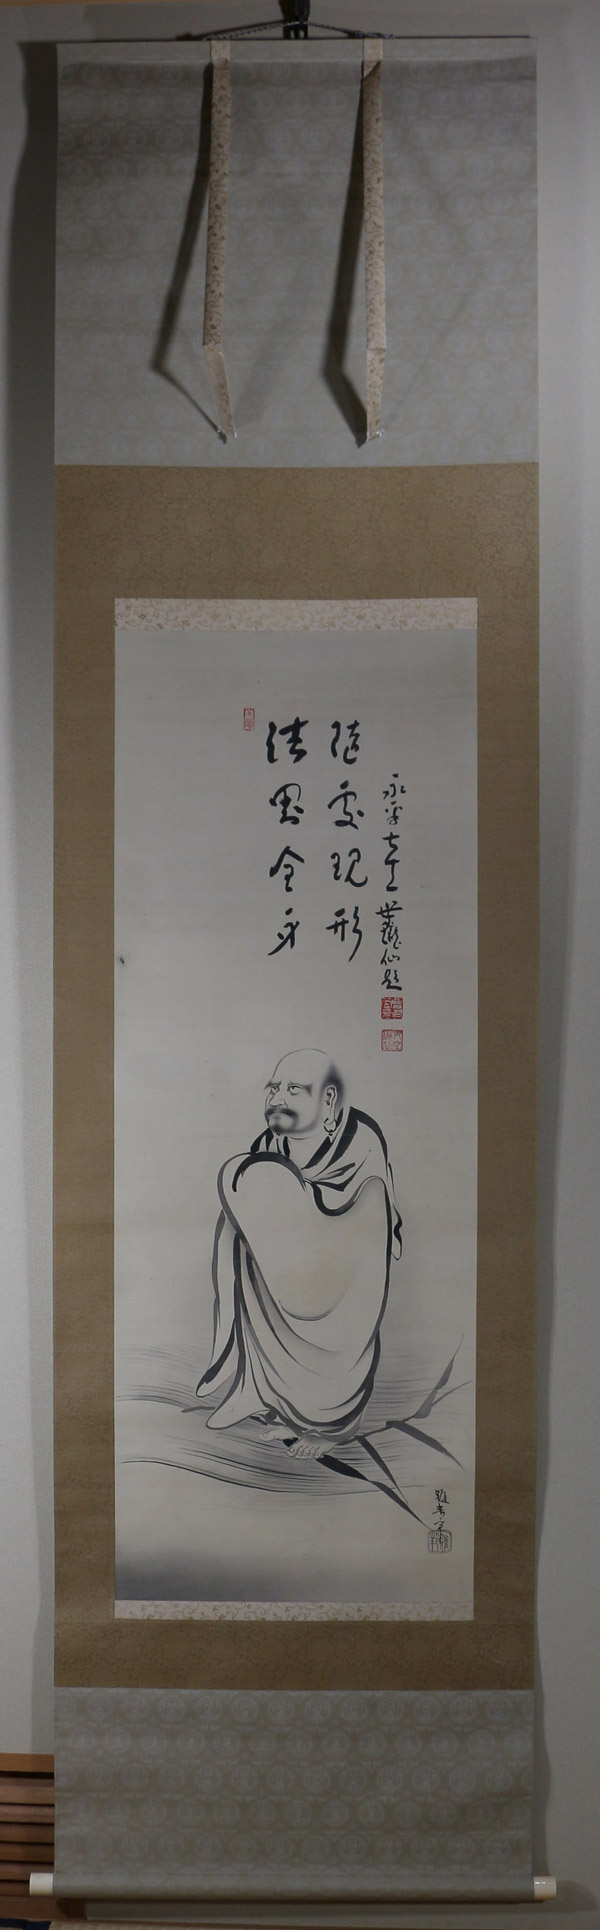 法界全身
隨處現形
永平七十一世瓏仙題